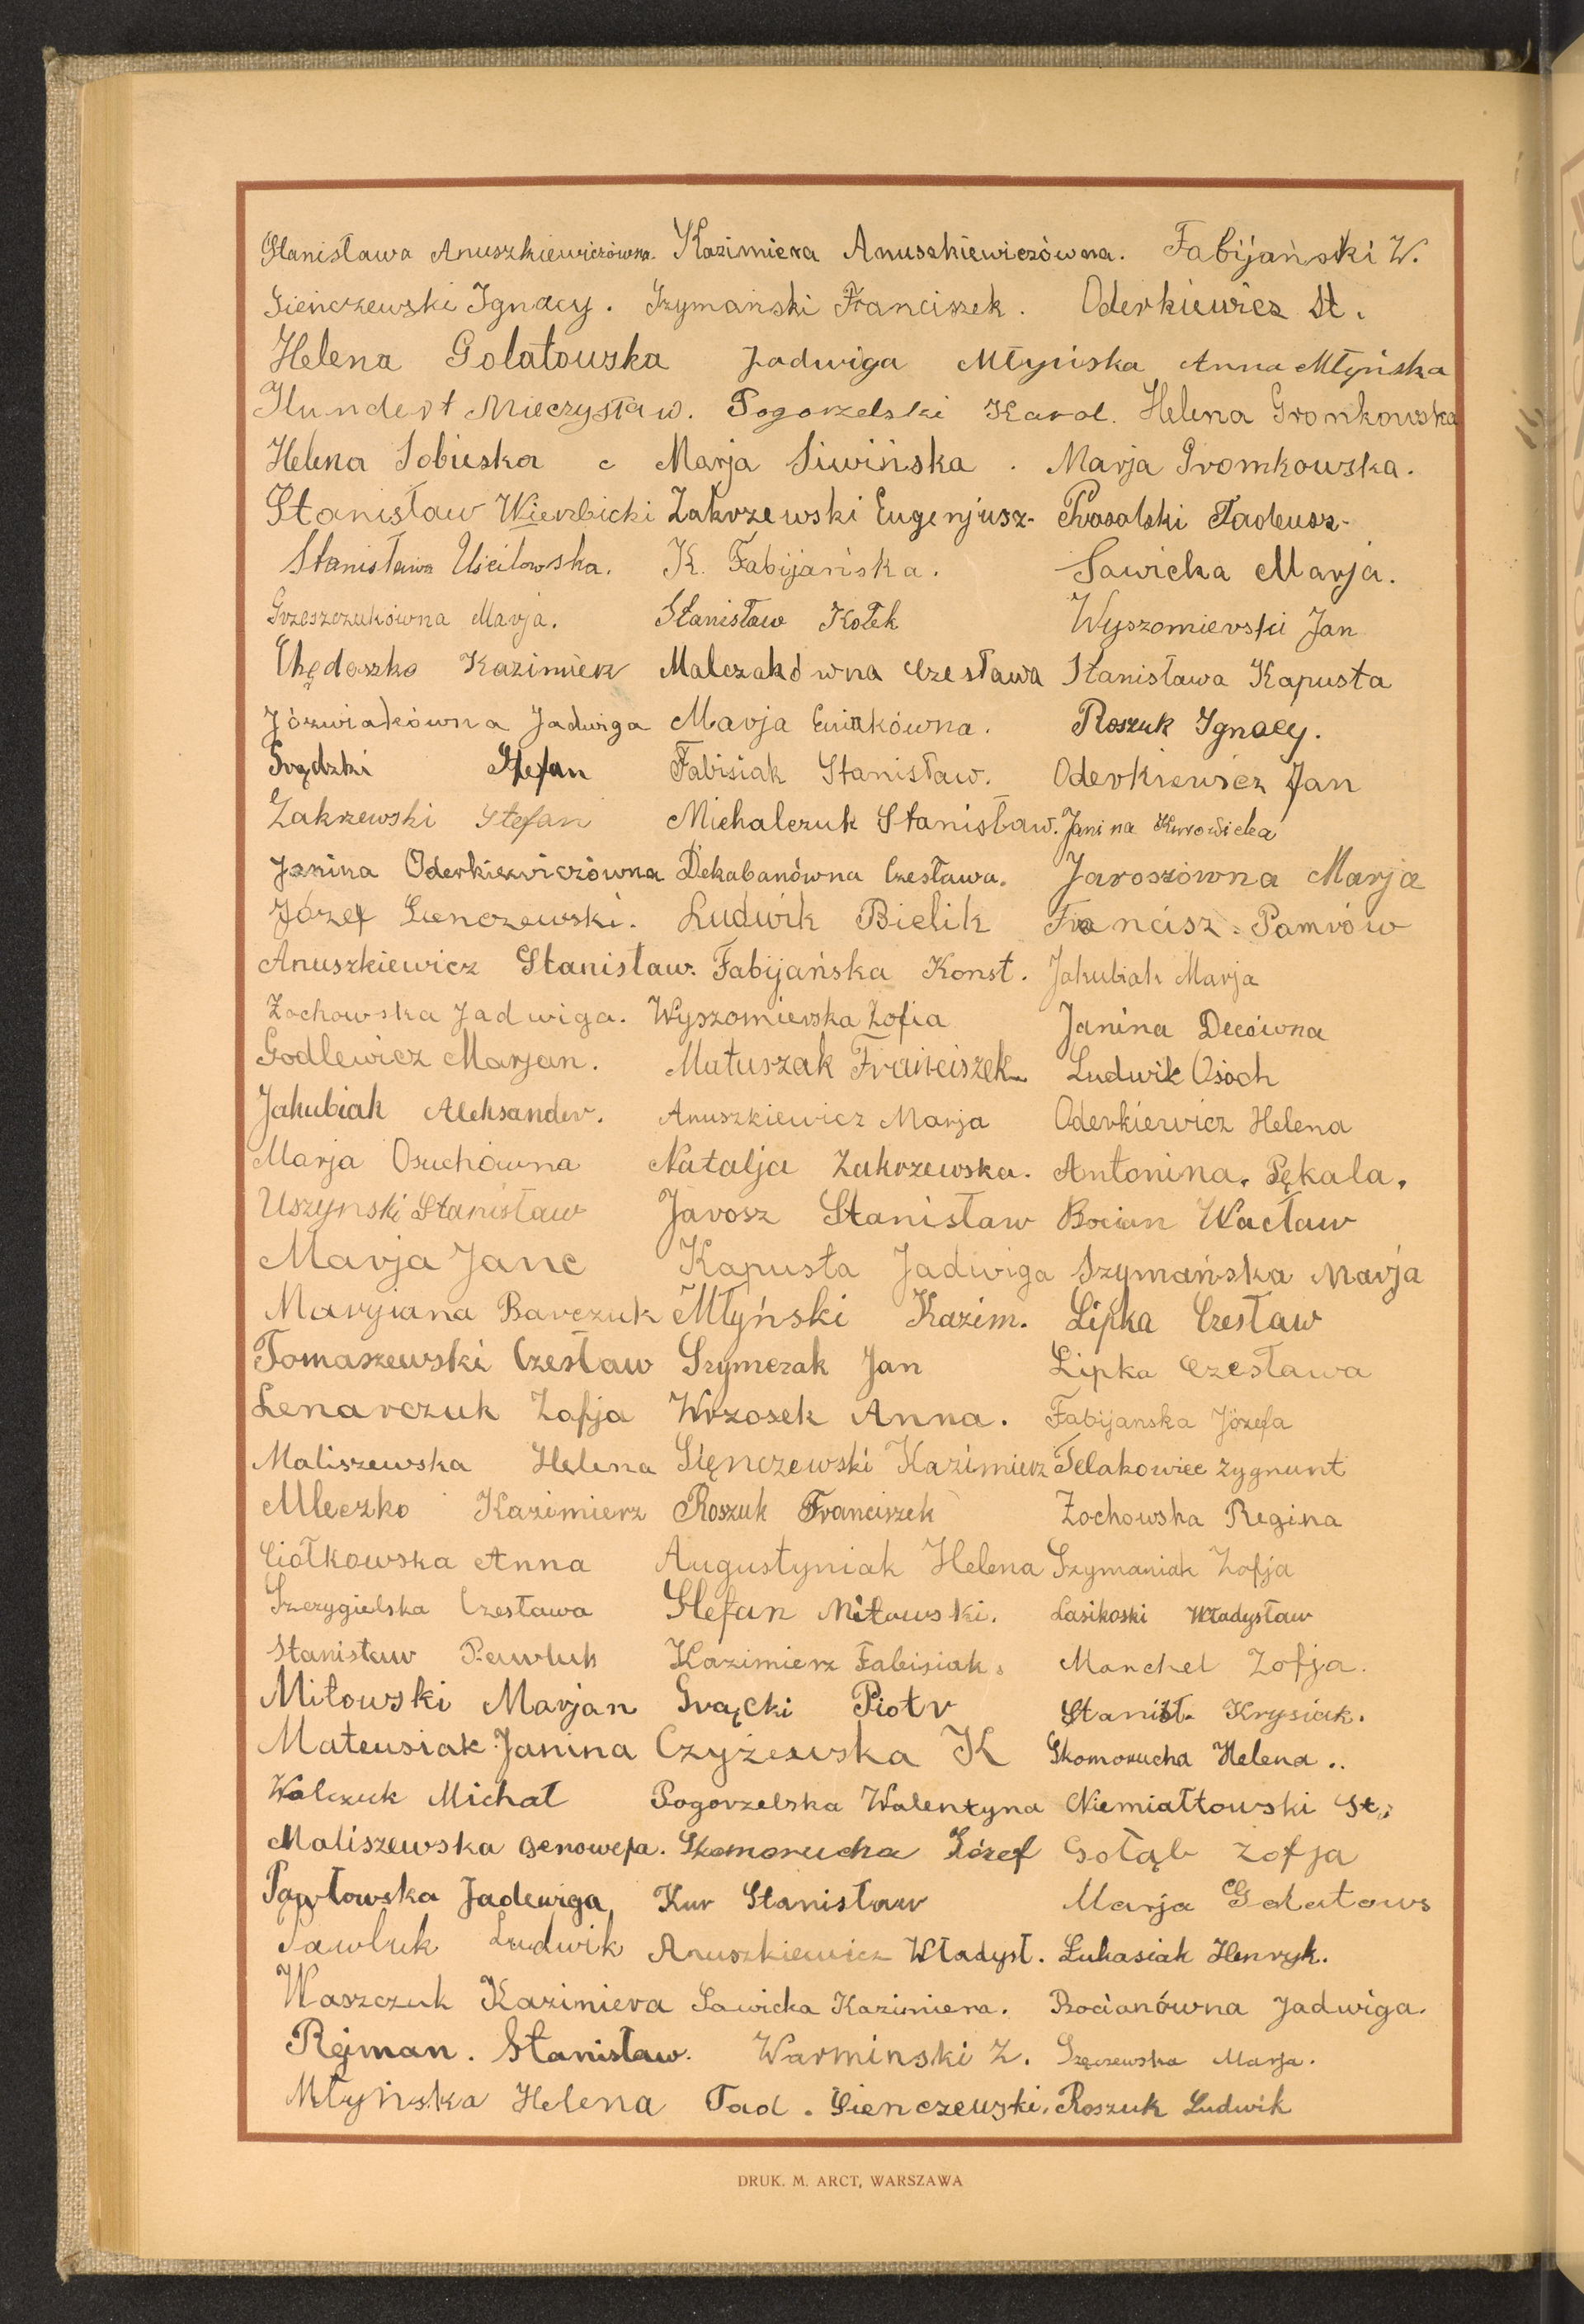 Stanisława Anuszkiewiczówna. Kazimiera Anuszkiewiczówna. Fabijański W.
Sieńczewski Ignacy. Szymański Franciszek. Oderkiewicz St.
Helena Golatowska Jadwiga Młyńska Anna Młyńska
Hundert Mieczysław. Pogorzelski Karol. Helena Gromkowska
Helena Sobieska Marja Siwińska. Marja Gromkowska.
Stanisław Wierzbicki Zakrzewski Eugenjusz- Prosalski Tadeusz-
Stanisława Uścilowska. K. Fabijańska. Sawicka Marja.
Grzeszczukówna Marja. Stanisław Kołek Wyszomierski Jan
Chędoszko Kazimierz Malczakówna Czesława Stanisława Kapusta
Józwiakówna Jadwiga Marja Ćwiakówna. Roszuk Ignacy.
Grądzki Stefan Fabisiak Stanisław. Oderkiewicz Jan
Zakrzewski Stefan Michalczuk Stanisław. Janina Kurowicka
Janina Oderkiewiczówna Dekabanówna Czesława. Jaroszówna Marja
Józef Sienczewski. Ludwik Bielik Francisz. Pamrów
Anuszkiewicz Stanisław. Fabijańska Konst. Jakubiak Marja
Żochowska Jadwiga. Wyszomierska Zofia Janina Decówna
Godlewicz Marjan. Matuszak Franciszek Ludwik Osoch
Jakubiak Aleksander. Anuszkiewicz Marja Oderkiewicz Helena
Marja Osuchówna Natalja Zakrzewska. Antonina. Pękala.
Uszyński Stanisław Jarosz Stanisław Bocian Wacław
Marja Janc Kapusta Jadwiga Szymańska Marja
Maryiana Barczuk Młyński Kazim. Lipka Czesław
Tomaszewski Czesław Szymczak Jan Lipka Czesława
Lenarczuk Zofja Wrzosek Anna. Fabijanska Józefa
Maliszewska Helena Sienczewski Kazimierz Telakowiec Zygmunt
Mleczko Kazimierz Roszuk Franciszek Żochowska Regina
Ciołkowska Anna Augustyniak Helena Szymaniak Zofja
Szczygielska Czesława Stefan Miłowski. Lasikoski Władysław
Stanisław Pawluk Kazimierz Fabisiak. Manckel Zofja.
Miłowski Marjan Grącki Piotr Stanisł. Krysiak.
Mateusiak Janina Czyżewska K Skomorucha Helena..
Walczuk Michał Pogorzelska Walentyna Niemiałtowski St.
Maliszewska Genowefa. Skomorucha Józef Gołąb Zofja
Pawłowska Jadwiga Kur Stanisław Marja Golatows
Pawluk Ludwik Anuszkiewicz Władysł. Łukasiak Henryk.
Waszczuk Kazimiera Sawicka Kazimiera. Bocianówna Jadwiga.
Rejman. Stanisław. Warminski Z. Szczewska Marja.
Młyńska Helena Tad. Sienczewski. Roszuk Ludwik
DRUK. M. ARCT, WARSZAWA